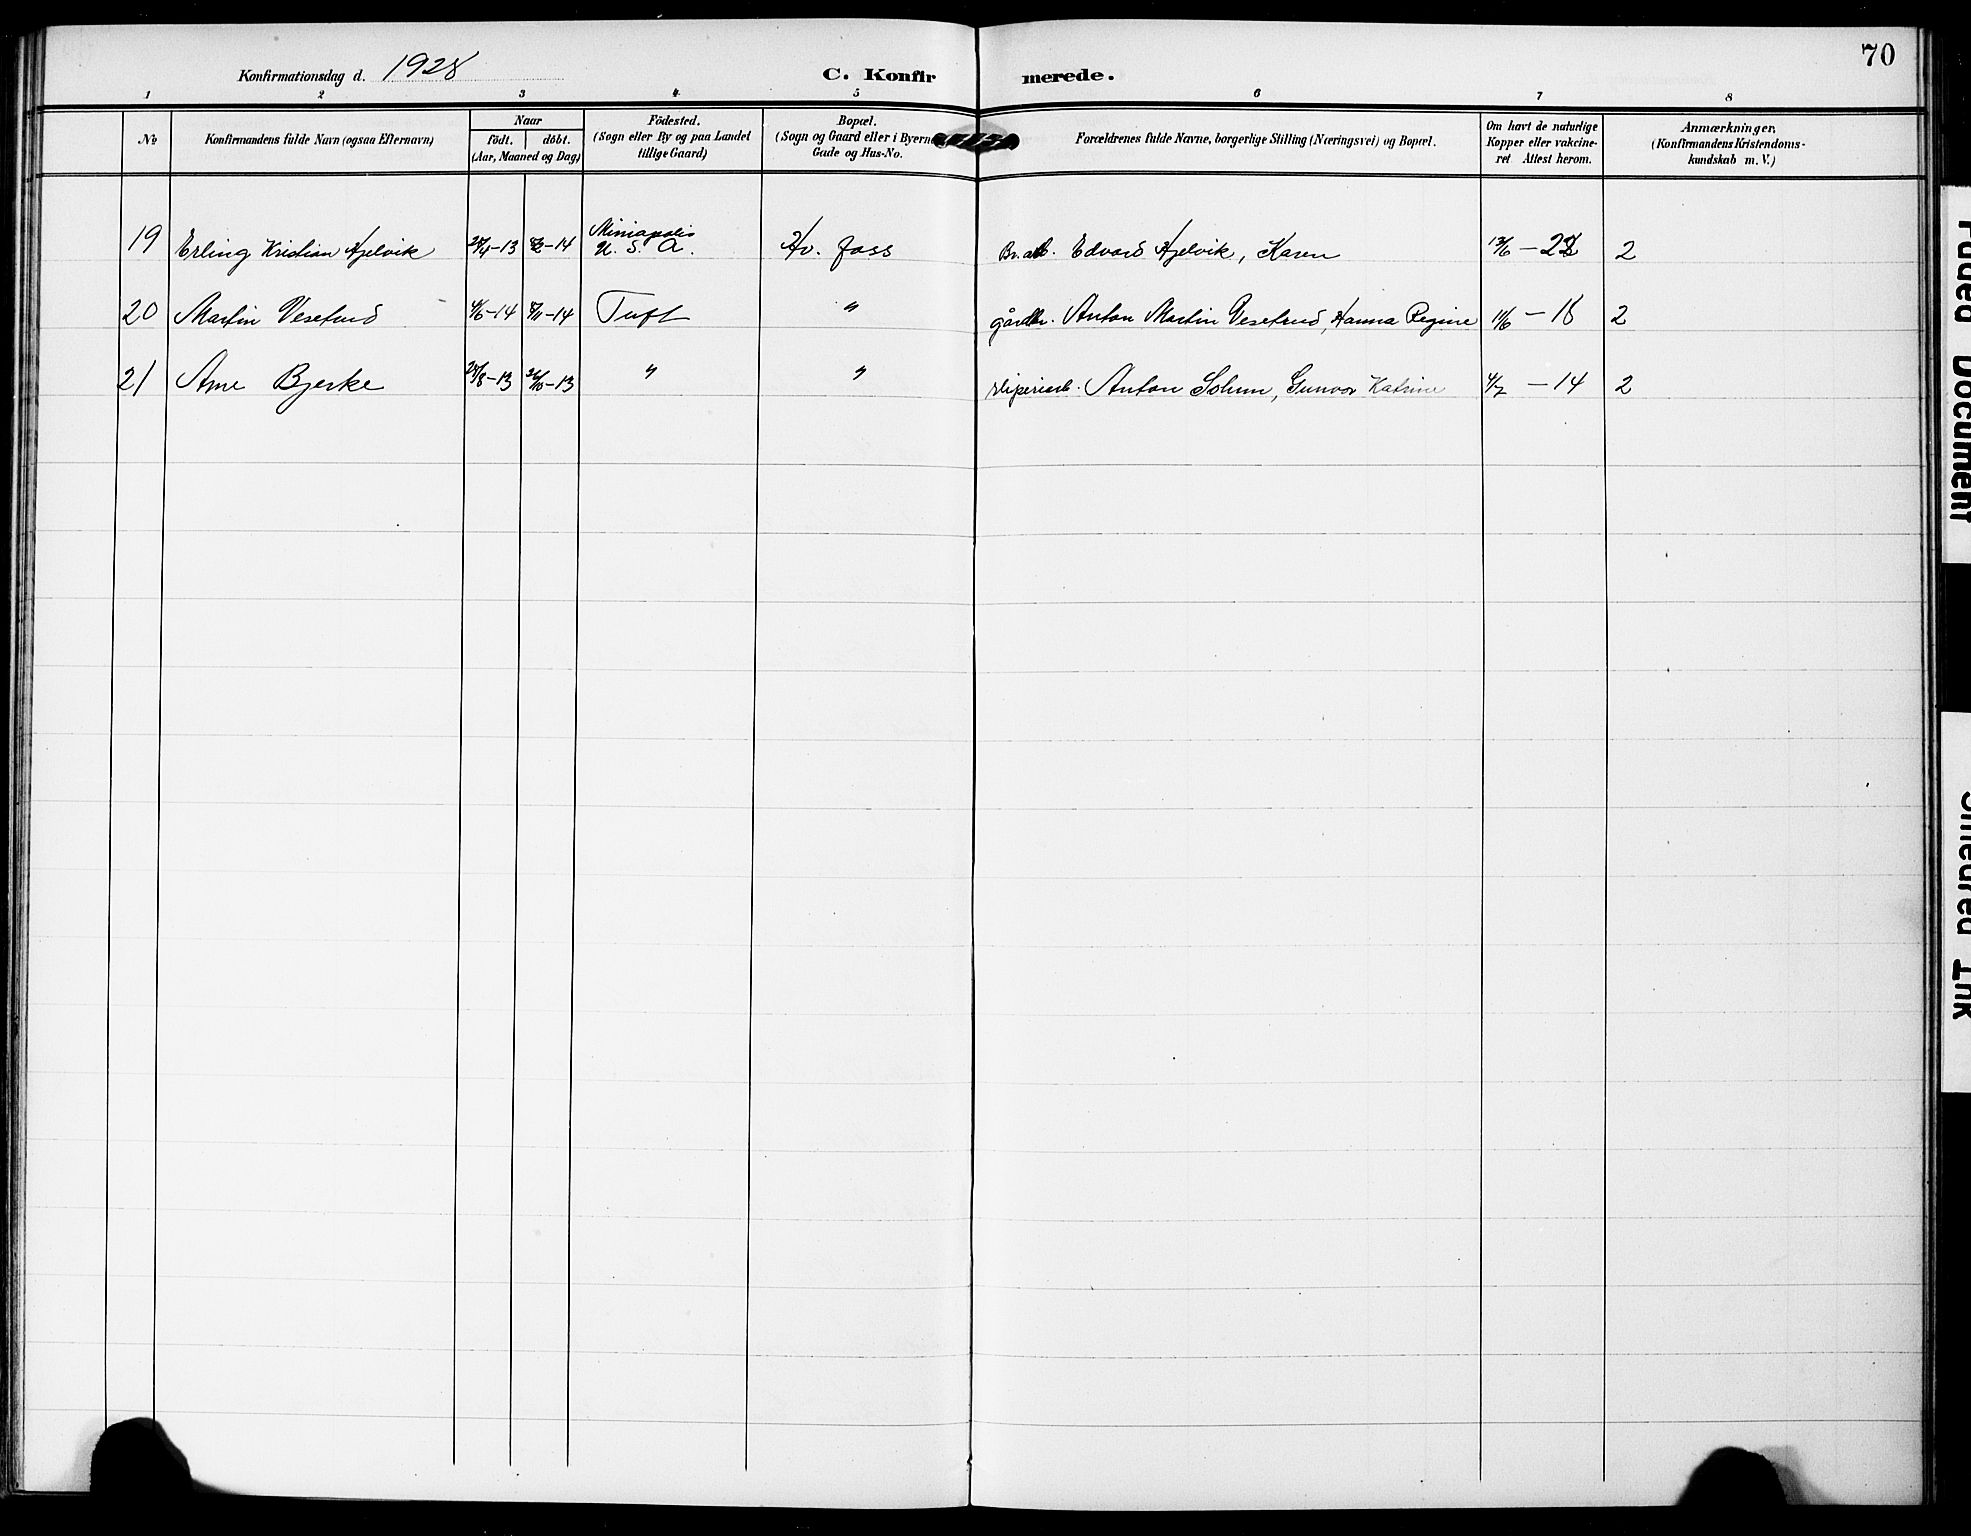 70
Konfirmationsdag d. 1928
C. Konfirmerede.
1 2 3 4 5 6 7 8
No
Konfirmandens fulde Navn (ogsaa Efternavn)
Naar
födt. döbt.
(Aar, Maaned og Dag)
Födested.
(Sogn eller By og paa Landet
tillige Gaard)
Bopæl.
(Sogn og Gaard eller i Byerne
Gade og Hus-No.
Forældrenes fulde Navne, borgerlige Stilling (Næringsvei) og Bopæl.
Om havt de naturlige
Kopper eller vakcine-
ret Attest herom.
Anmærkninger,
(Konfirmandens Kristendoms-
kundskab m. V.)
Miniapolis
19 Erling Kristian Hjelvik -13 -14 U. S. A. Hv. foss Edvard Hjelvik, Karen 13/6 - 2
20 Martin Vesetrud 4/6-14 8/11-14 Tuft " gårdbr. Anton Martin Vesetrud, Hanna Regine 11/6 - 18 2
21 Arne Bjerke 24/8-13 26/10-13 " " sliperiarb. Anton Solum, Gunvor Katrine 4/7 - 14 2
Faded Document
Smeared Ink